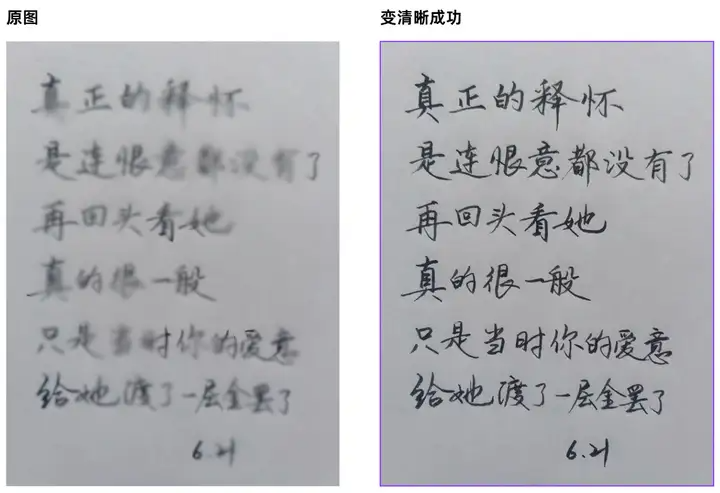 原图
真正的释怀
是连恨意都没有了
再回头看她
真的很一般
只是当时你的爱意
给她渡了一层金罢了
6.21
变清晰成功
真正的释怀
是连恨意都没有了
再回头看她
真的很一般
只是当时你的爱意
给她渡了一层金罢了
6.21